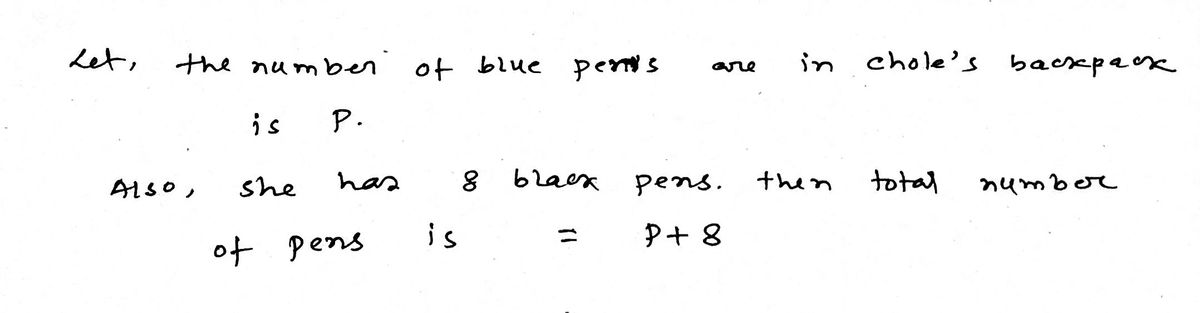 Let, the number of blue pens are in chole's backpack
is P.
Also, she has 8 black pens. then total number
of pens is = P+ 8